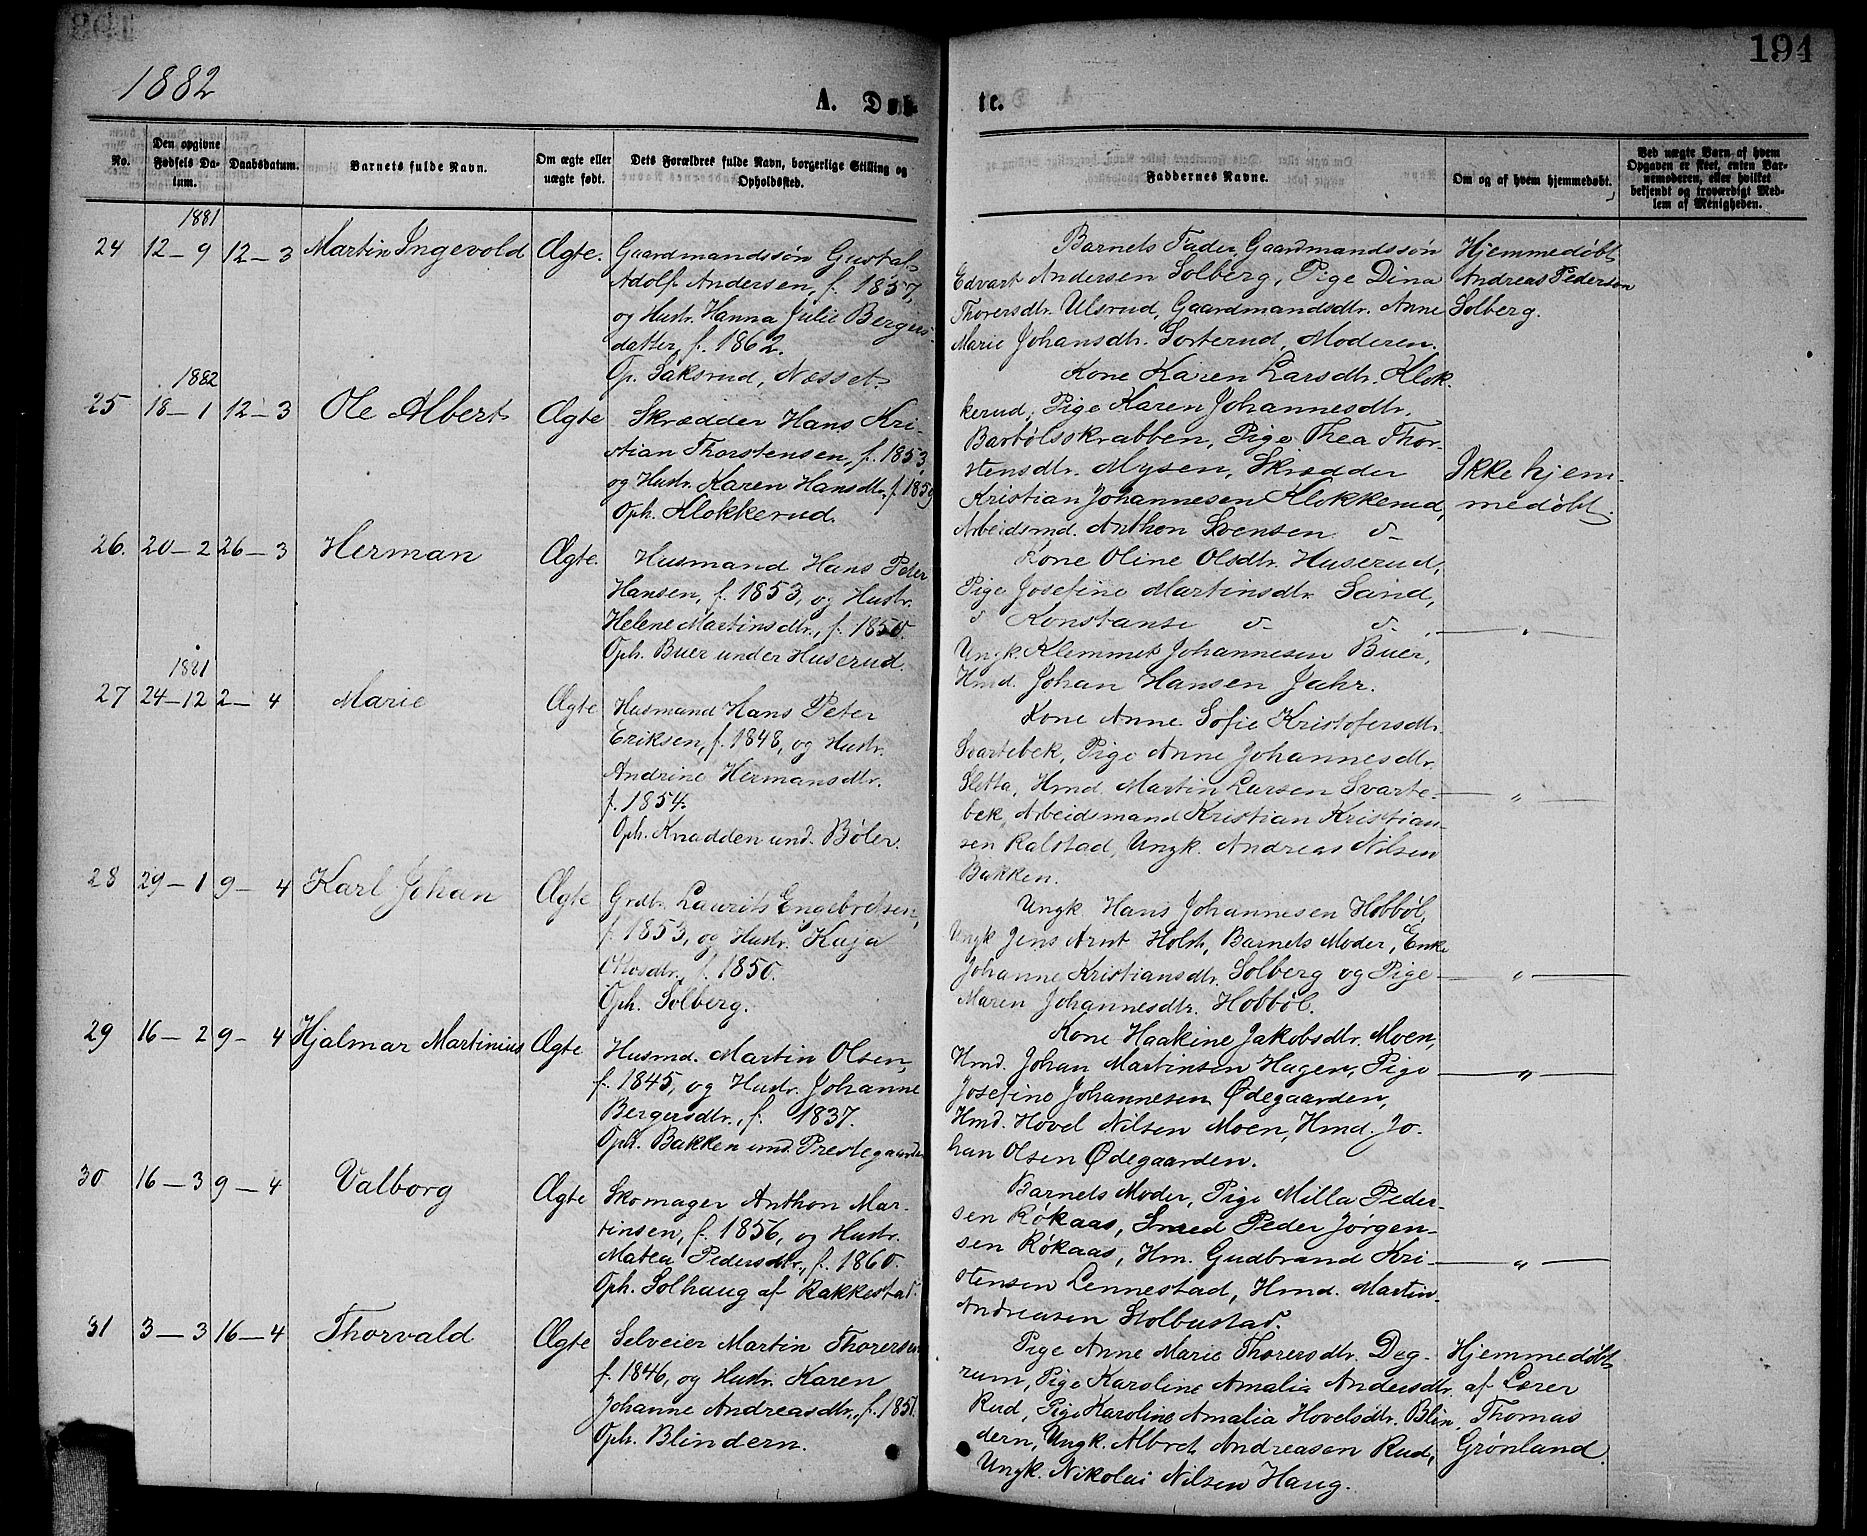 194
1882
A. Døb-
te.
No.
Den opgivne Fødsels Da-
tum.
Daabsdatum.
Barnets fulde Navn.
Om ægte eller
uægte født.
Dets Forældres fulde Navn, borgerlige Stilling og
Opholdssted.
Faddernes Navne.
Om og af hvem hjemmedøbt.
Ved uægte Barn af hvem
Opgaven er skeet, enten Bar-
nemoderen, eller hvilket
bekjendt og troværdigt Med-
lem af Menigheden.
1881
24 12–9 12–3 Martin Ingevold Ægte.
Gaardmandssøn Gustaf
Adolf Andersen, f. 1857,
og Hustr. Hanna Julie Bergers-
datter, f. 1862.
Op. Saksrud, Næsset.
Barnets Fader, Gaardmandssøn
Edvart Andersen Solberg, Pige Dina
Thorersdtr. Ulsrud, Gaardmandsdtr. Anne
Marie Johansdtr. Sorterud, Moderen.
Hjemmedøbt
Andreas Pederson
Solberg.
1882
25 18–1 12–3 Ole Albert Ægte
Skrædder Hans Kri-
stian Thorstensen, f. 1853,
og Hustr. Karen Hansdtr., f. 1859
Oph. Klokkerud.
Kone Karen Larsdtr. Klok-
kerud, Pige Karen Johannesdtr.
Barbølsskrabben, Pige Thea Thor-
stensdtr. Mysen, Skrædder
Kristian Johannesen Klokkerud,
Arbeidsmd. Anthon Svensen d–
Ikke hjem-
medøbt.
26. 20–2 26–3 Herman Ægte.
Husmand Hans Peter
Hansen, f. 1853, og Hustr.
Helene Martinsdtr., f. 1850.
Oph. Buer under Huserud.
Kone Oline Olsdtr. Huserud,
Pige Josefine Martinsdtr. Sand,
d Konstanse d– d–,
Ungk. Klemmet Johannesen Buer,
Hmd. Johan Hansen Jahr.
— „ —
1881
27 24–12 2–4 Marie Ægte
Husmand Hans Peter
Eriksen, f. 1848, og Hustr.
Andrine Hermansdtr.
f. 1854.
Oph. Knadden und. Bøler.
Kone Anne Sofie Kristofersdtr.
Svartebek, Pige Anne Johannesdtr.
Sletta, Hmd. Martin Larsen Svarte-
bek, Arbeidsmand Kristian Kristian-
sen Ralstad, Ungk. Andreas Nilsen
Bakken.
— „ —
28 29–1 9–4 Karl Johan Ægte
Grdbr. Laurits Engebretsen,
f. 1853, og Hustr. Kaja
Ottosdtr., f. 1850.
Oph. Solberg.
Ungk. Hans Johannesen Hobbøl,
Ungk Jens Arnt Holst, Barnets Moder, Enke
Johanne Kristiansdtr. Solberg og Pige
Maren Johannesdtr. Hobbøl.
— „ —
29 16–2 9–4 Hjalmar Martinius Ægte
Husmd. Martin Olsen,
f. 1845, og Hustr. Johanne
Bergersdtr., f. 1837.
Oph. Bakken und. Prestegaarden
Kone Haakine Jakobsdtr. Moen,
Hmd. Johan Martinsen Hagen, Pige
Josefine Johannesen Ødegaarden,
Hmd. Hovel Nilsen Moen, Hmd. Jo-
han Olsen Ødegaarden.
— „ —
30 16–3 9–4 Valborg Ægte
Skomager Anthon Mar-
tinsen, f. 1856, og Hustr.
Matea Pedersdtr., f. 1860.
Oph. Solhaug af Rakkestad.
Barnets Moder, Pige Milla Peder-
sen Røkaas, Smed Peder Jørgen-
sen Røkaas, Hm. Gudbrand Kri-
stensen Lennestad, Hmd. Martin
Andreasen Stolbustad.
— „ —
31 3–3 16–4 Thorvald Ægte
Selveier Martin Thorersen
f. 1846, og Hustr. Karen
Johanne Andreasdtr., f. 1851.
Oph. Blindern.
Pige Anne Marie Thorersdtr. Deg-
rum, Pige Karoline Amalia Andersdtr.
Rud, Pige Karoline Amalia Hovelsdtr. Blin-
dern, Ungk. Albret Andreasen Rud,
Ungk. Nikolai Nilsen Haug.
Hjemmedøbt
af Lærer
Thomas
Grønland.